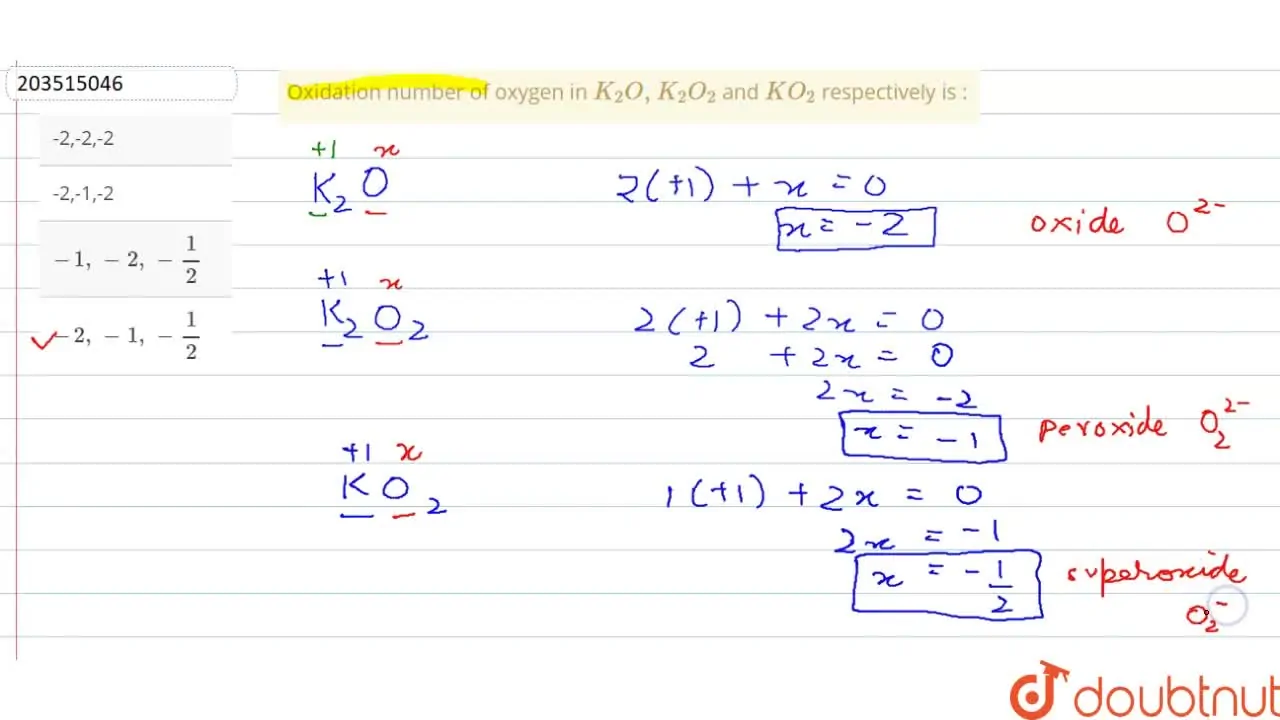 203515046
Oxidation number of oxygen in K₂O, K₂O₂ and KO₂ respectively is :
-2,-2,-2
-2,-1,-2
−1, −2, −1/2
−2, −1, −1/2
+1 x
K₂O
2(+1) + x = 0
x = -2
oxide O²⁻
+1 x
K₂O₂
2(+1) + 2x = 0
2 + 2x = 0
2x = -2
x = -1
peroxide O₂²⁻
+1 x
KO₂
1(+1) + 2x = 0
2x = -1
x = -1/2
superoxide
O₂⁻
doubtnut